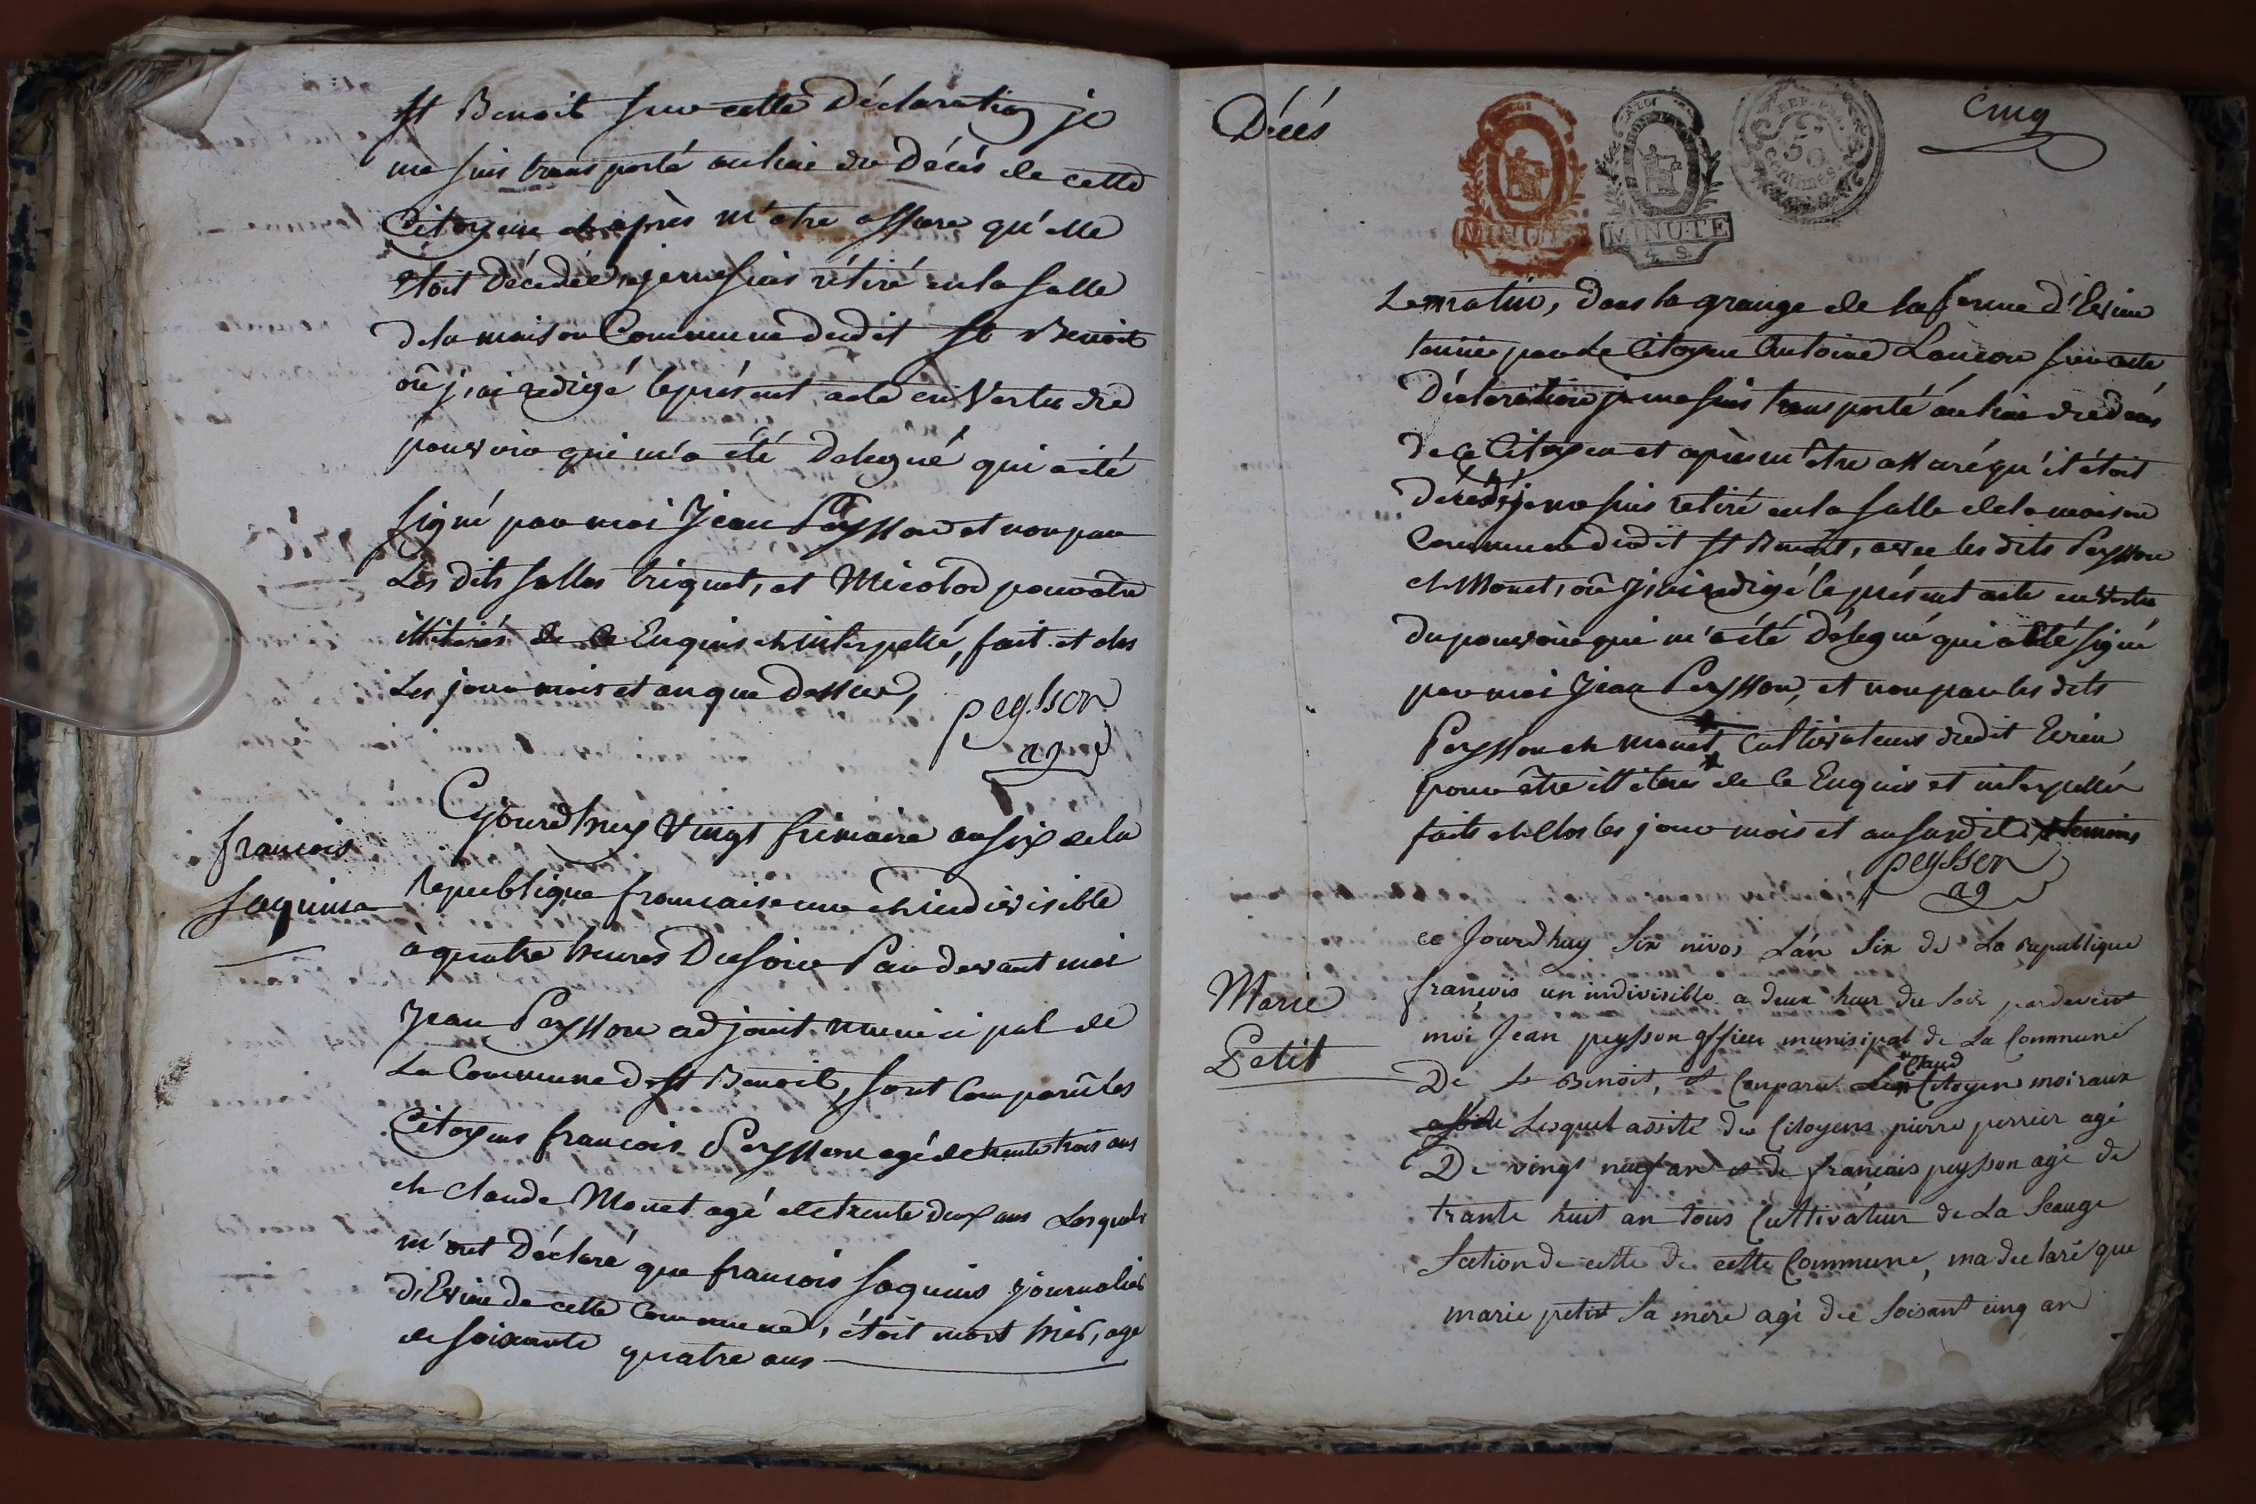 st Benoit sur cette Déclaration je
me suis transporté au lieu du Décés de cette
Citoyene et après m'etre assure qu'elle
étoit Décédée, je me suis rétiré en la salle
de la maison Commune dudit st Benoit
où j'ai redigé le présent acte en Vertu du
pouvoir qui m'a été Delegué qui a été
signé par moi Jean Peysson et non par
Les dits salles triquet, et Micolod pour etre
illitérés de ce Enquis et interpellé, fait et clos
Les jour mois et an que Dessus,
peysson
ag
Cejourd'huy Vingt frimaire an six de la
françois
saquin
republique françaisse une et indivisible
a quatre heures Du soir Par devant moi
Jean Peysson adjoint municipal de
La Commune de st Benoit, sont Comparû les
Citoyens françois Peysson agé de trente trois ans
et claude Monet agé de trente deux ans Lesquels
m'ont Déclaré que françois saquins journalier
d'Evieu de cette Commune, étoit mort hier, agé
de soixante quatre ans
Décés
cinq
MINUTE
MINUTE
4 S
REP. FRA.
50
centimes
Le matin, dans la grange de la ferme d'Evieu
tenüe par Le Citoyen Antoine Lançon sur cette
Déclaration je me suis transporté au lieu du décés
de ce Citoyen et après m'etre assuré qu'il étoit
décédé, je me suis retiré en la salle de la maison
Commune dudit st Benoit, avec les dits Peysson
et Monet, où j'ai redigé le présent acte en vertu
du pouvoir qui m'a été Délegué qui a été signé
par moi Jean Peysson, et non par les dits
Peysson et monet, cultivateurs dudit Evieu
pour être illiterés de ce Enquis et interpellés
faits et clos les jour mois et an susdit temoins
peysson
ag
ce Jourdhuy six nivos Lan six de La republique
Marie
Petit
françois un indivisible a deux heur du soir pardevent
moi Jean peysson offier munisipal de La Commune
Claud
De st Benoit, et Conparu Citoyen moiraux
Lesquel assité des Citoyens pierre perrier agé
De vingt neuf an et de françois peysson agé de
trante huit an tous Cultivateur de La Sauge
section de cette de cette Commune, ma declaré que
marie petit sa mere agé de soisant cinq an